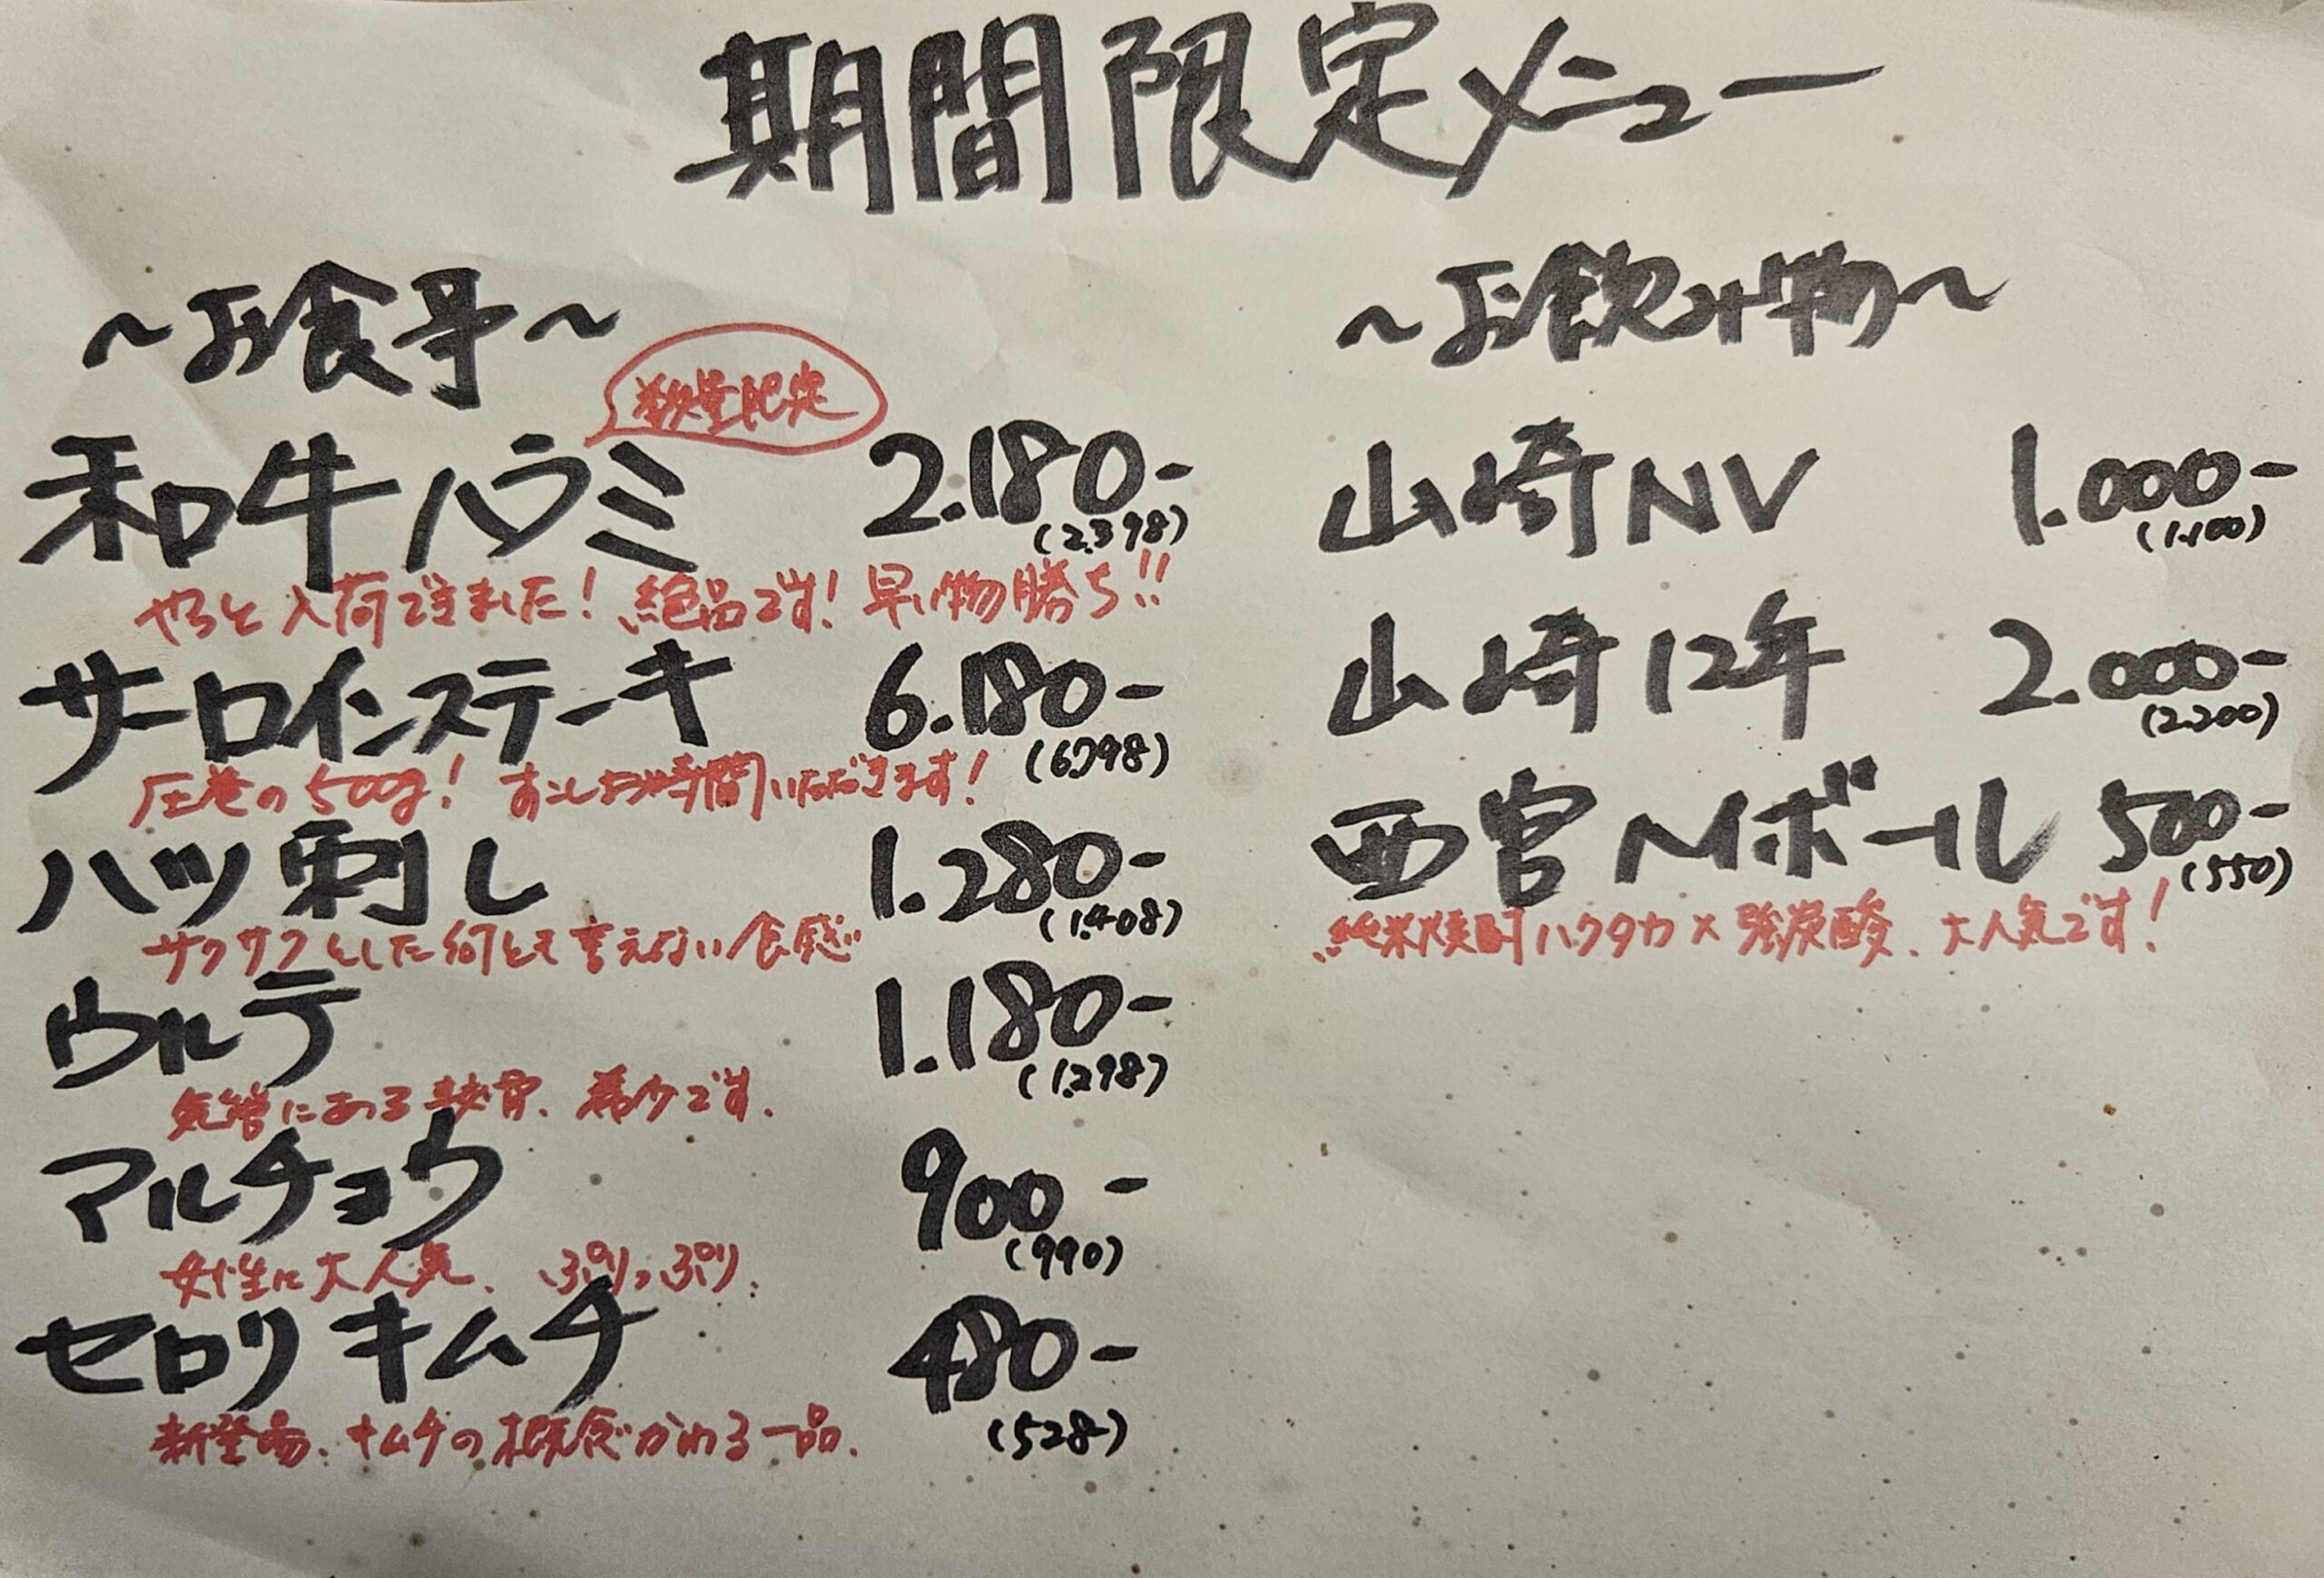 期間限定メニュー
～お食事～
数量限定
和牛ハラミ 2.180-
(2.398)
やっと入荷できました！絶品です！早い物勝ち!!
サーロインステーキ 6.180-
(6.798)
圧巻の500g！すこしお時間いただきます！
ハツ刺し 1.280-
(1.408)
サクサクとした何とも言えない食感
ウルテ 1.180-
(1.298)
気管にある軟骨、希少です.
マルチョウ 900-
(990)
女性に大人気、ぷりっぷり
セロリキムチ 480-
(528)
新登場、キムチの概念がかわる一品.
～お飲み物～
山崎NV 1.000-
(1.100)
山崎12年 2.000-
(2.200)
西宮Mボール 500-
(550)
純米焼酎ハクタカ×強炭酸、大人気です！